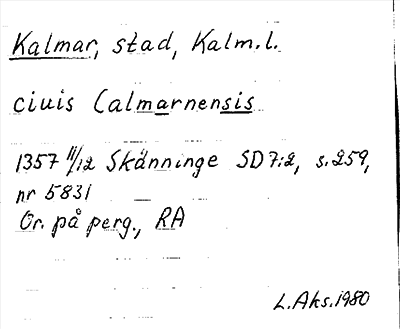 Kalmar, stad, Kalm.l.
ciuis Calmarnensis
1357 11/12 Skänninge SD 7:2, s.259,
nr 5831
Or. på perg., RA
L.Aks.1980